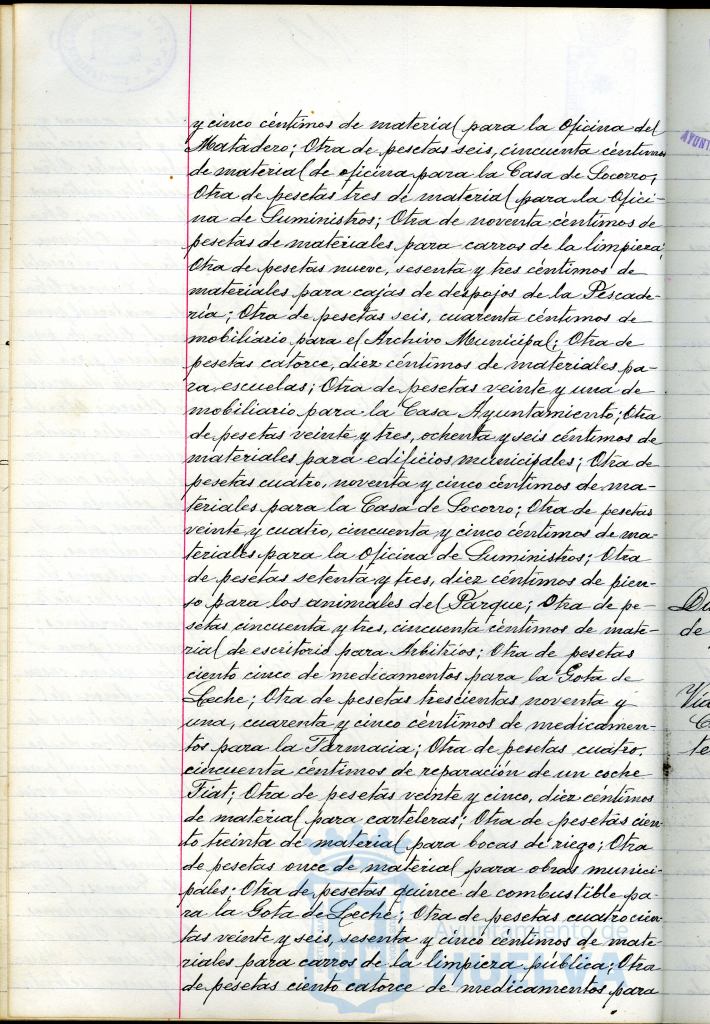 y cinco céntimos de material para la Oficina del
Matadero; Otra de pesetas seis, cincuenta céntimos
de material de oficina para la Casa de Socorro;
Otra de pesetas tres de material para la Ofici-
na de Suministros; Otra de noventa céntimos de
pesetas de materiales para carros de la limpieza;
Otra de pesetas nueve, sesenta y tres céntimos de
materiales para cajas de despojos de la Pescade-
ria; Otra de pesetas seis, cuarenta céntimos de
mobiliario para el Archivo Municipal; Otra de
pesetas catorce, diez céntimos de materiales pa-
ra escuelas; Otra de pesetas veinte y una de
mobiliario para la Casa Ayuntamiento; Otra
de pesetas veinte y tres, ochenta y seis céntimos de
materiales para edificios municipales; Otra de
pesetas cuatro, noventa y cinco céntimos de ma-
teriales para la Casa de Socorro; Otra de pesetas
veinte y cuatro, cincuenta y cinco céntimos de ma-
teriales para la Oficina de Suministros; Otra
de pesetas setenta y tres, diez céntimos de pien-
so para los animales del Parque; Otra de pe-
setas cincuenta y tres, cincuenta céntimos de mate-
rial de escritorio para Arbitrios; Otra de pesetas
ciento cinco de medicamentos para la Gota de
Leche; Otra de pesetas trescientas noventa y
una, cuarenta y cinco céntimos de medicamen-
tos para la Farmacia; Otra de pesetas cuatro,
cincuenta céntimos de reparación de un coche
Fiat; Otra de pesetas veinte y cinco, diez céntimos
de material para carteleras; Otra de pesetas cien-
to treinta de material para bocas de riego; Otra
de pesetas once de material para obras munici-
pales; Otra de pesetas quince de combustible pa-
ra la Gota de Leche; Otra de pesetas cuatrocien-
tas veinte y seis, sesenta y cinco céntimos de mate-
riales para carros de la limpieza pública; Otra
de pesetas ciento catorce de medicamentos para
Ayuntamiento de
HUELVA
AYUNT
de
te